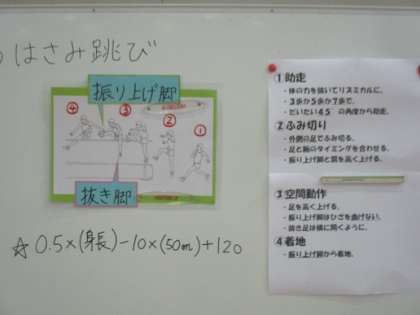 はさみ跳び
振り上げ脚
④
③
②
①
抜き脚
☆ 0.5×(身長)-10×(50m)+120
①助走
・体の力を抜いてリズミカルに。
・3歩か5歩か7歩で。
・だいたい45°の角度から助走。
②ふみ切り
・外側の足でふみ切る。
・足と腕のタイミングを合わせる。
・振り上げ脚と肩を高く上げる。
③空間動作
・足を高く上げる。
・振り上げ脚はひざを曲げない。
・抜き足は横に開くように。
④着地
・振り上げ脚から着地。